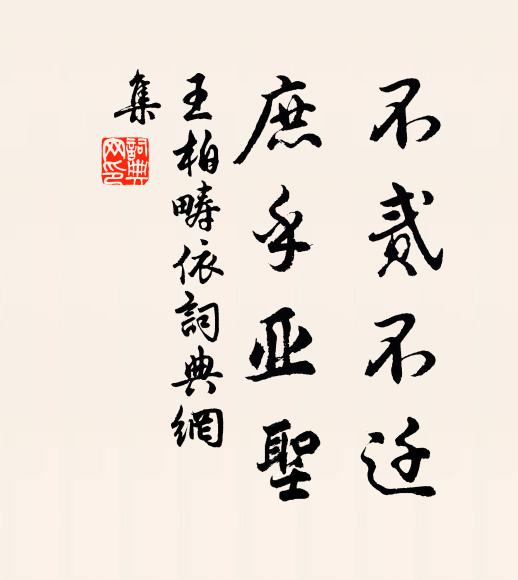 不貳不迁
庶乎亚聖
王柏畴依詞典網
集
詞典
网印